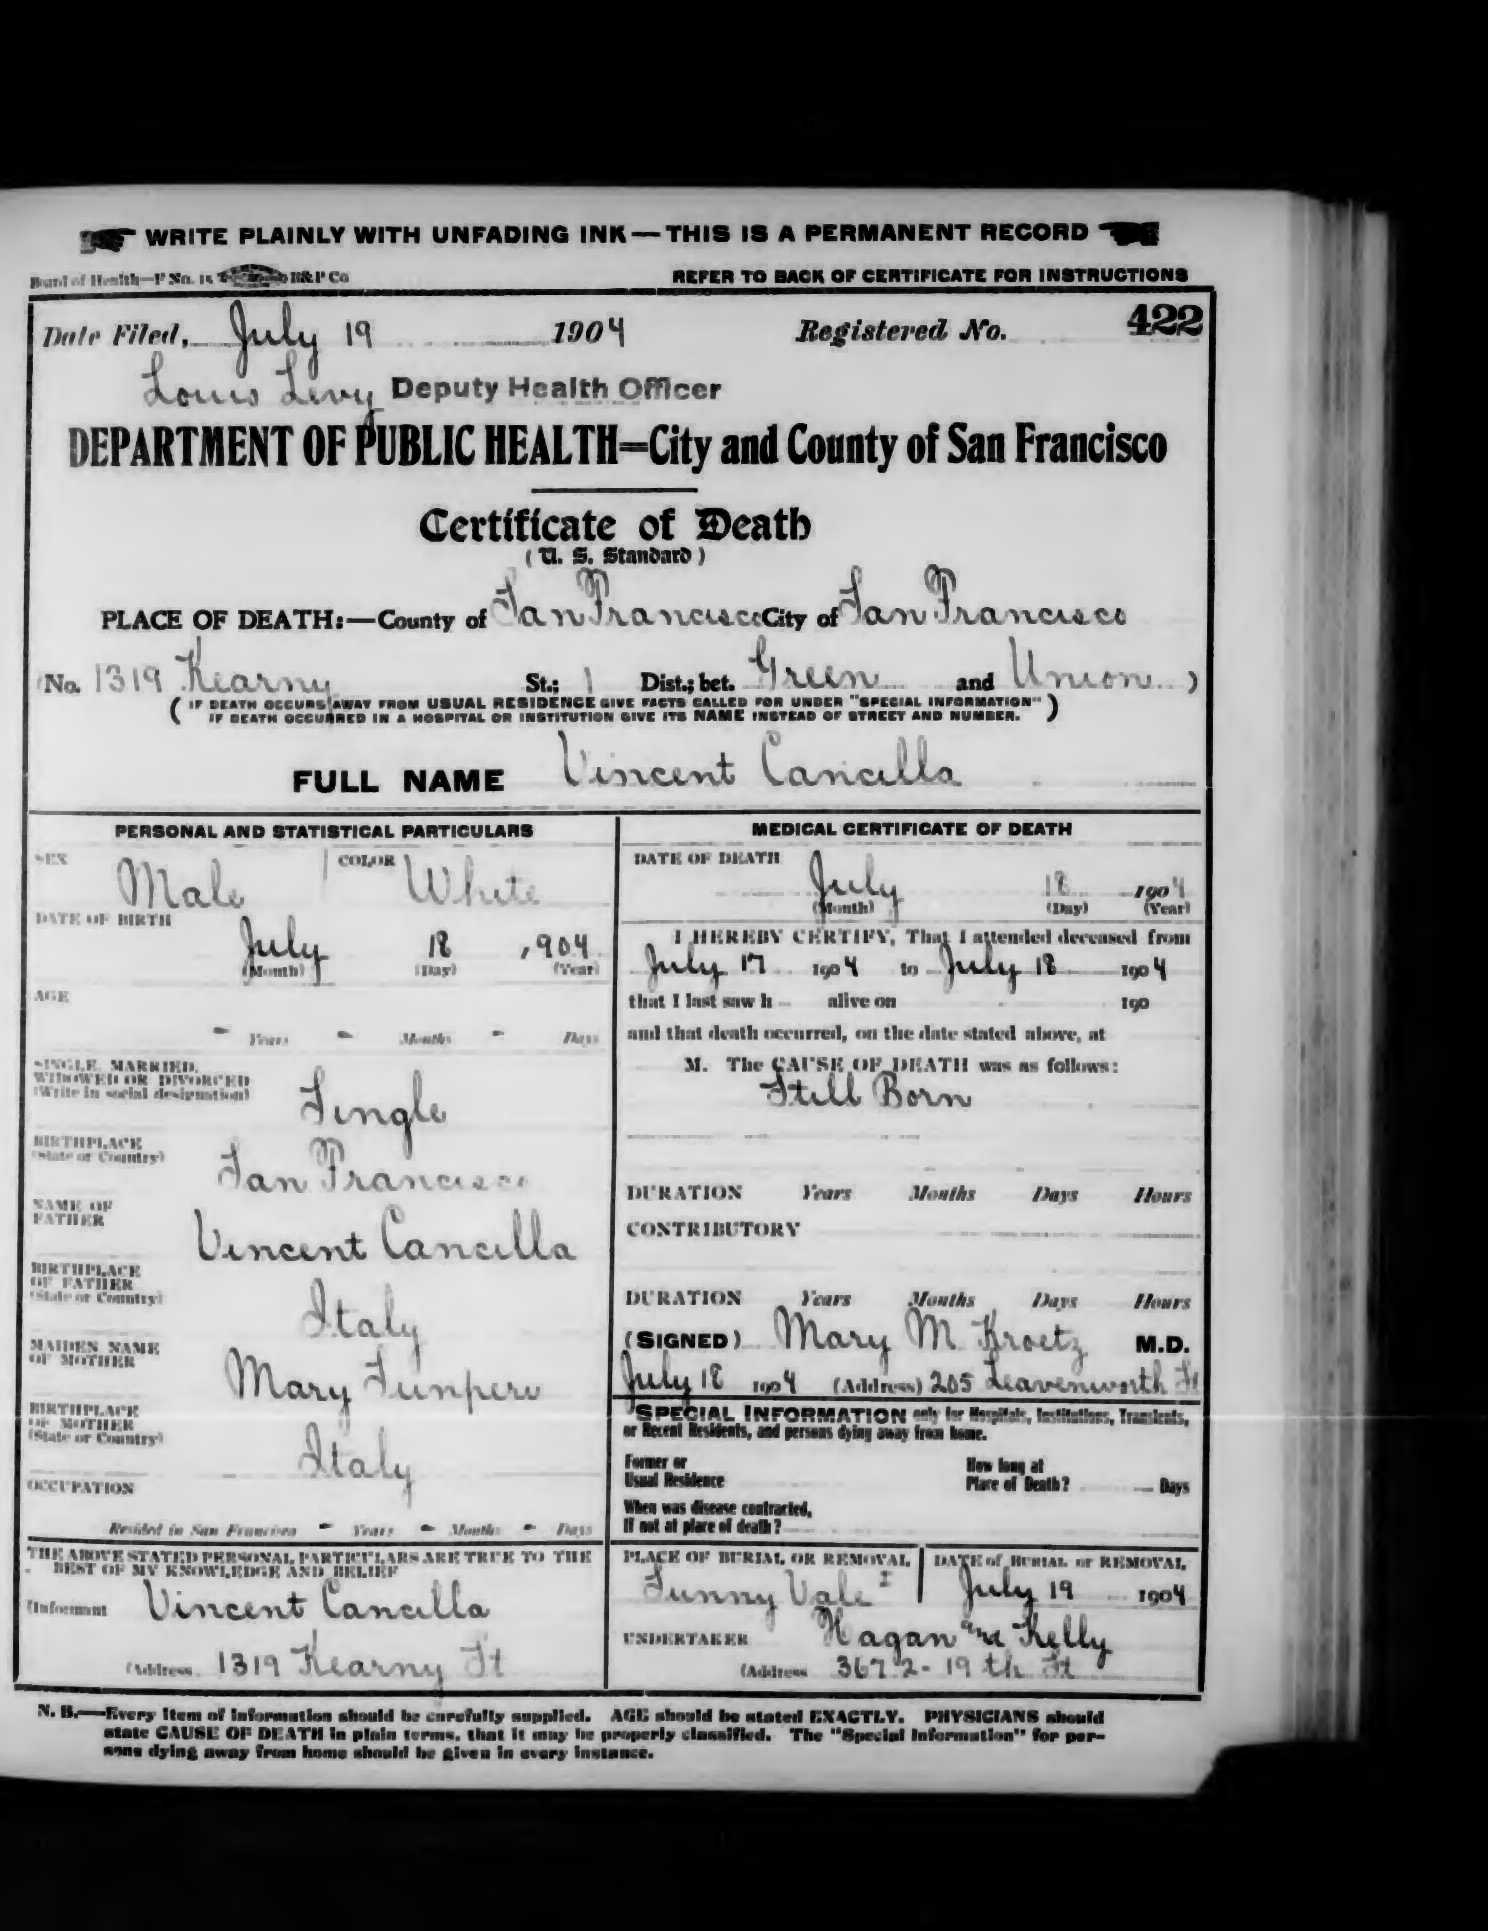 WRITE PLAINLY WITH UNFADING INK — THIS IS A PERMANENT RECORD
Board of Health—F No. 15 B&P Co REFER TO BACK OF CERTIFICATE FOR INSTRUCTIONS
Date Filed, July 19 1904 Registered No. 422
Louis Levy Deputy Health Officer
DEPARTMENT OF PUBLIC HEALTH=City and County of San Francisco
Certificate of Death
(U. S. Standard)
PLACE OF DEATH:—County of San Francisco City of San Francisco
(No. 1319 Kearny St.; 1 Dist.; bet. Green and Union )
( IF DEATH OCCURS AWAY FROM USUAL RESIDENCE GIVE FACTS CALLED FOR UNDER "SPECIAL INFORMATION" )
IF DEATH OCCURRED IN A HOSPITAL OR INSTITUTION GIVE ITS NAME INSTEAD OF STREET AND NUMBER.
FULL NAME Vincent Cancilla
PERSONAL AND STATISTICAL PARTICULARS
SEX Male COLOR White
DATE OF BIRTH
July 18 , 904
(Month) (Day) (Year)
AGE
- Years - Months - Days
SINGLE, MARRIED,
WIDOWED OR DIVORCED
(Write in social designation) Single
BIRTHPLACE
(State or Country) San Francisco
NAME OF
FATHER Vincent Cancilla
BIRTHPLACE
OF FATHER
(State or Country) Italy
MAIDEN NAME
OF MOTHER Mary
BIRTHPLACE
OF MOTHER
(State or Country) Italy
OCCUPATION
Resided in San Francisco - Years - Months - Days
THE ABOVE STATED PERSONAL PARTICULARS ARE TRUE TO THE
BEST OF MY KNOWLEDGE AND BELIEF
(Informant Vincent Cancilla
(Address 1319 Kearny St
MEDICAL CERTIFICATE OF DEATH
DATE OF DEATH
July 18 1904
(Month) (Day) (Year)
I HEREBY CERTIFY, That I attended deceased from
July 17 1904 to July 18 1904
that I last saw h alive on 190
and that death occurred, on the date stated above, at
M. The CAUSE OF DEATH was as follows:
Still Born
DURATION Years Months Days Hours
CONTRIBUTORY
DURATION Years Months Days Hours
(SIGNED) Mary M Kroetz M.D.
July 18 1904 (Address) 205 Leavenworth St
SPECIAL INFORMATION only for Hospitals, Institutions, Transients,
or Recent Residents, and persons dying away from home.
Former or
Usual Residence
How long at
Place of Death? Days
When was disease contracted,
If not at place of death?
PLACE OF BURIAL OR REMOVAL
Sunny Vale I
DATE of BURIAL or REMOVAL
July 19 1904
UNDERTAKER Hagan and Kelly
(Address 3672- 19th St
N. B.—Every item of information should be carefully supplied. AGE should be stated EXACTLY. PHYSICIANS should
state CAUSE OF DEATH in plain terms, that it may be properly classified. The "Special Information" for per-
sons dying away from home should be given in every instance.